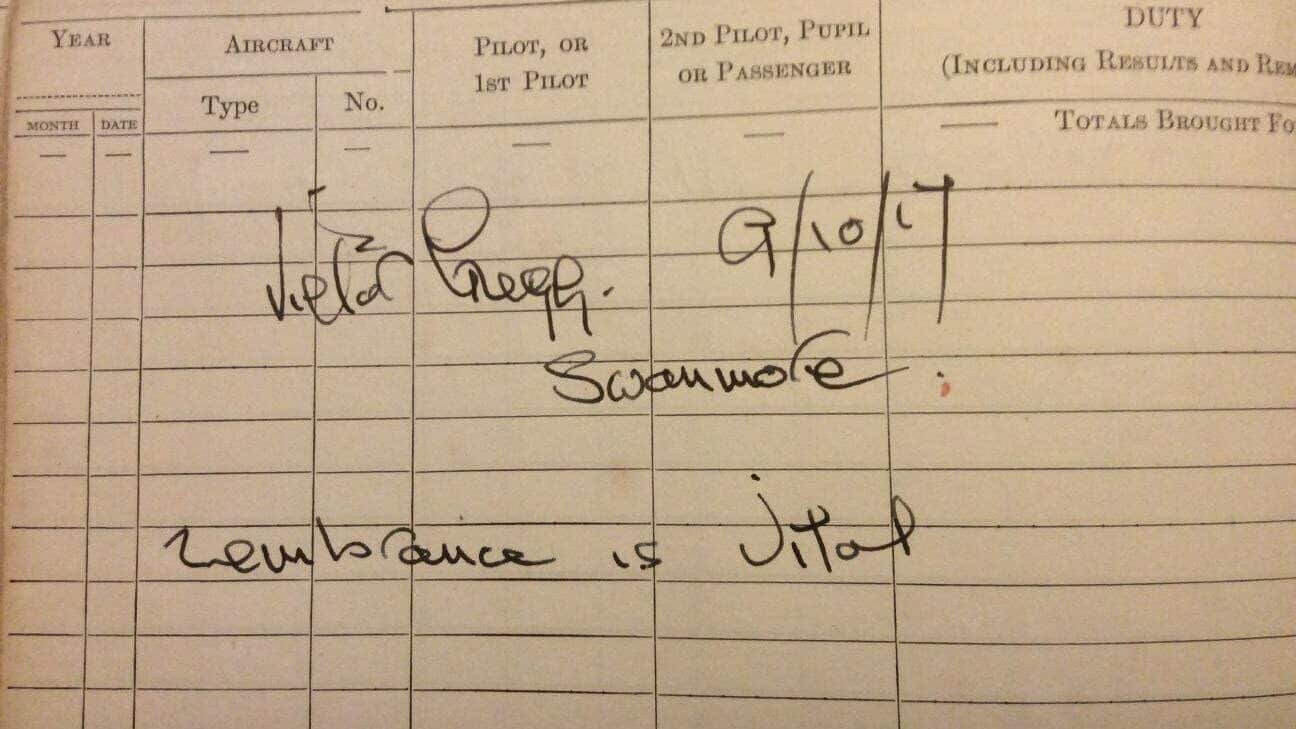 YEAR
AIRCRAFT
PILOT, OR
1ST PILOT
2ND PILOT, PUPIL
OR PASSENGER
DUTY
(INCLUDING RESULTS AND REM
Type
No.
MONTH
DATE
— — — — — — — TOTALS BROUGHT FO
Victor Gregg. 9/10/17
Swanmore.
rembrance is vital